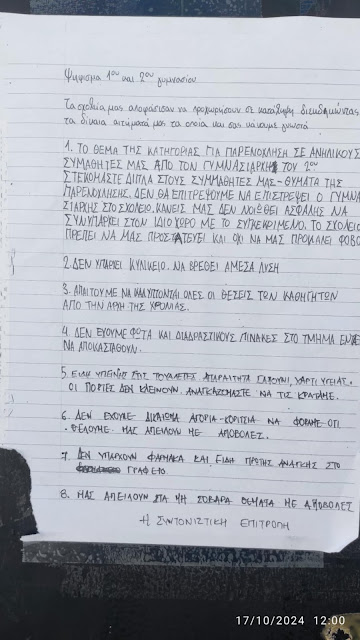 Ψήφισμα 1ου και 2ου γυμνασίου
Τα σχολεία μας αποφάσισαν να προχωρήσουν σε κατάληψη διεκδικώντας
τα δίκαια αιτήματά μας τα οποία και σας κάνουμε γνωστά
1. ΤΟ ΘΕΜΑ ΤΗΣ ΚΑΤΗΓΟΡΙΑΣ ΓΙΑ ΠΑΡΕΝΟΧΛΗΣΗ ΣΕ ΑΝΗΛΙΚΟΥΣ
ΣΥΜΑΘΗΤΕΣ ΜΑΣ ΑΠΟ ΤΟΝ ΓΥΜΝΑΣΙΑΡΧΗ ΤΟΥ 2ου
ΣΤΕΚΟΜΑΣΤΕ ΔΙΠΛΑ ΣΤΟΥΣ ΣΥΜΜΑΘΗΤΕΣ ΜΑΣ - ΘΥΜΑΤΑ ΤΗΣ
ΠΑΡΕΝΟΧΛΗΣΗΣ. ΔΕΝ ΘΑ ΕΠΙΤΡΕΨΟΥΜΕ ΝΑ ΕΠΙΣΤΡΕΨΕΙ Ο ΓΥΜΝΑ
ΣΙΑΡΧΗΣ ΣΤΟ ΣΧΟΛΕΙΟ. ΚΑΝΕΙΣ ΜΑΣ ΔΕΝ ΝΟΙΩΘΕΙ ΑΣΦΑΛΗΣ ΝΑ
ΣΥΝΥΠΑΡΧΕΙ ΣΤΟΝ ΙΔΙΟ ΧΩΡΟ ΜΕ ΤΟ ΣΥΓΚΕΚΡΙΜΕΝΟ. ΤΟ ΣΧΟΛΕΙΟ
ΠΡΕΠΕΙ ΝΑ ΜΑΣ ΠΡΟΣΤΑΤΕΥΕΙ ΚΑΙ ΟΧΙ ΝΑ ΜΑΣ ΠΡΟΚΑΛΕΙ ΦΟΒΟ
2. ΔΕΝ ΥΠΑΡΧΕΙ ΚΥΛΙΚΕΙΟ. ΝΑ ΒΡΕΘΕΙ ΑΜΕΣΑ ΛΥΣΗ
3. ΑΠΑΙΤΟΥΜΕ ΝΑ ΚΑΛΥΠΤΟΝΤΑΙ ΟΛΕΣ ΟΙ ΘΕΣΕΙΣ ΤΩΝ ΚΑΘΗΓΗΤΩΝ
ΑΠΟ ΤΗΝ ΑΡΧΗ ΤΗΣ ΧΡΟΝΙΑΣ.
4 ΔΕΝ ΕΧΟΥΜΕ ΦΩΤΑ ΚΑΙ ΔΙΑΔΡΑΣΤΙΚΟΥΣ ΠΙΝΑΚΕΣ ΣΤΟ ΤΜΗΜΑ ΕΝΤΑΞΗΣ
ΝΑ ΑΠΟΚΑΣΤΑΘΟΥΝ.
5 ΕΙΔΗ ΥΓΕΙΙΝΗΣ ΣΤΙΣ ΤΟΥΑΛΕΤΕΣ ΑΠΑΡΑΙΤΗΤΑ ΣΑΠΟΥΝΙ, ΧΑΡΤΙ ΥΓΕΙΑΣ.
ΟΙ ΠΟΡΤΕΣ ΔΕΝ ΚΛΕΙΝΟΥΝ. ΑΝΑΓΚΑΖΟΜΑΣΤΕ ΝΑ ΤΙΣ ΚΡΑΤΑΜΕ.
6. ΔΕΝ ΕΧΟΥΜΕ ΔΙΚΑΙΩΜΑ ΑΓΟΡΙΑ-ΚΟΡΙΤΣΙΑ ΝΑ ΦΟΡΑΜΕ ΟΤΙ
ΘΕΛΟΥΜΕ. ΜΑΣ ΑΠΕΙΛΟΥΝ ΜΕ ΑΠΟΒΟΛΕΣ.
7. ΔΕΝ ΥΠΑΡΧΟΥΝ ΦΑΡΜΑΚΑ ΚΑΙ ΕΙΔΗ ΠΡΩΤΗΣ ΑΝΑΓΚΗΣ ΣΤΟ
ΓΡΑΦΕΙΟ.
8. ΜΑΣ ΑΠΕΙΛΟΥΝ ΓΙΑ ΜΗ ΣΟΒΑΡΑ ΘΕΜΑΤΑ ΜΕ ΑΠΟΒΟΛΕΣ
Η ΣΥΝΤΟΝΙΣΤΙΚΗ ΕΠΙΤΡΟΠΗ
17/10/2024 12:00